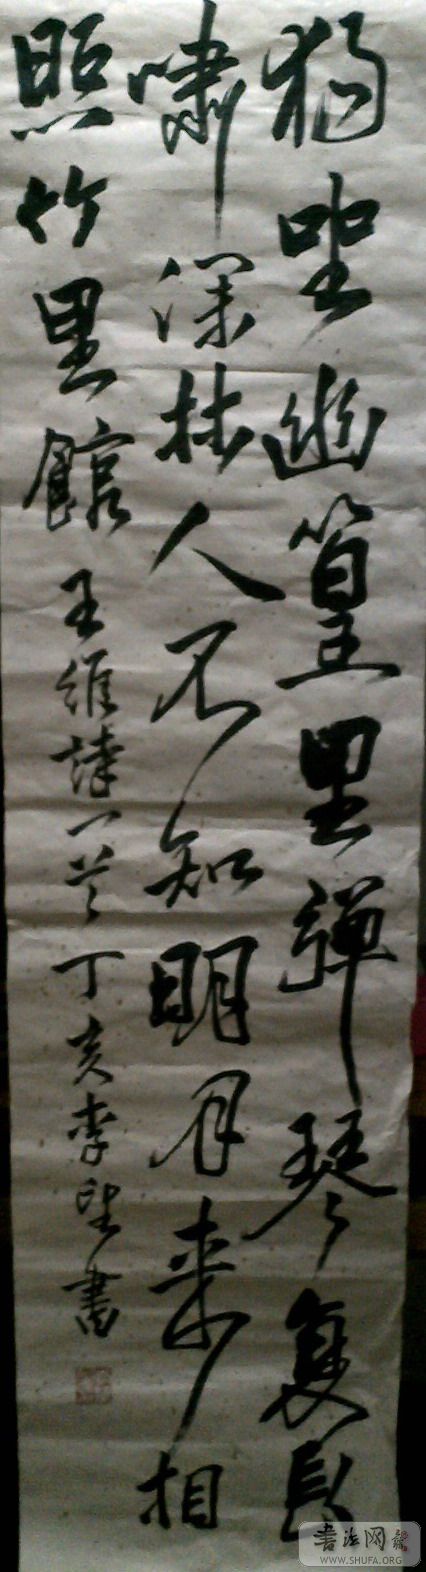 獨坐幽篁里彈琴復長
嘯深林人不知明月來相
照竹里館
王維詩一首丁亥李望書
書法网
WWW.SHUFA.ORG